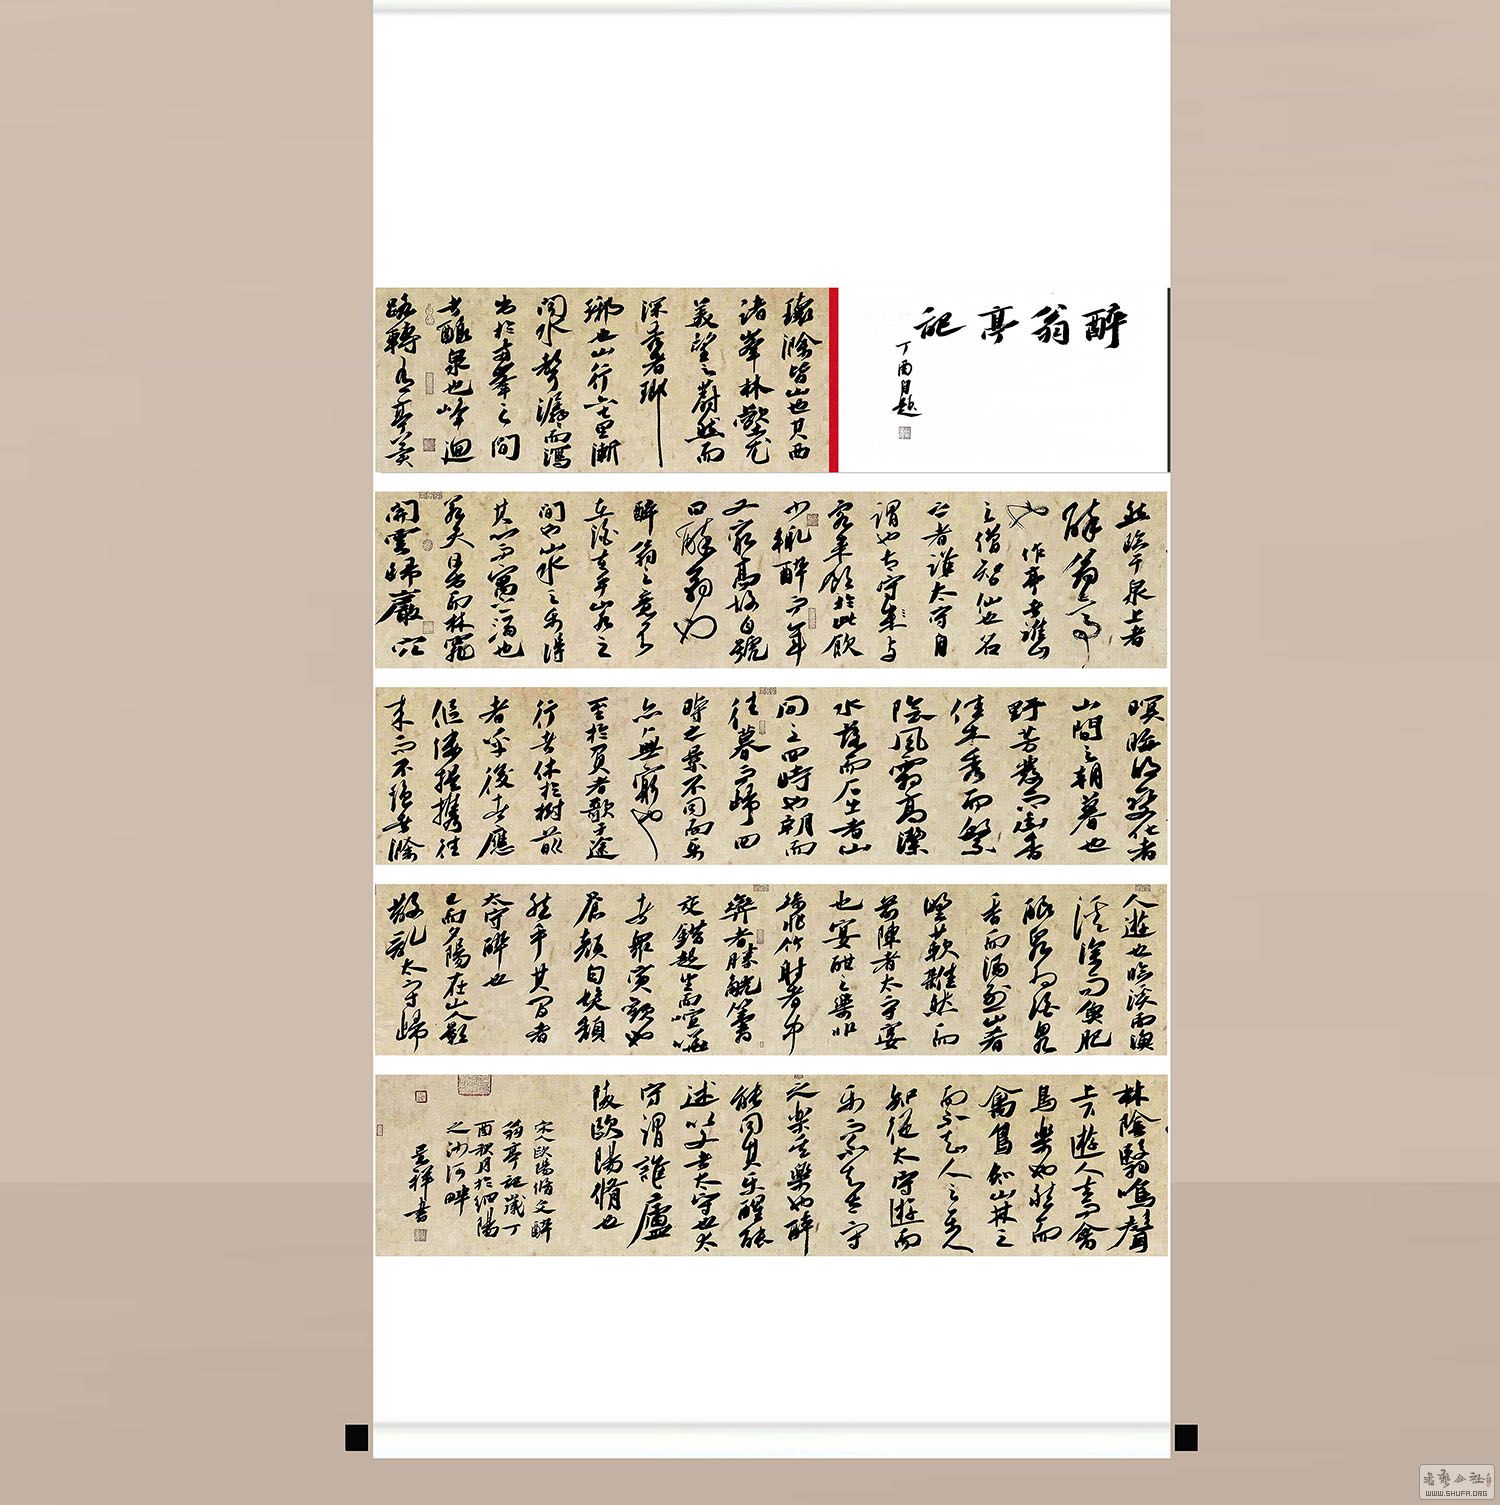 醉翁亭記
丁酉自題
環滁皆山也其西
諸峯林壑尤
美望之蔚然而
深秀者瑯
琊也山行六七里漸
聞水聲潺而瀉
出於兩峯之間
者釀泉也峰迴
路轉有亭翼
然臨于泉上者
醉翁亭
也作亭者誰山
之僧智仙也名
之者誰太守自
謂也太守來与
客來飲於此飲
少輒醉而年
又最高故自號
曰醉翁也
醉翁之意不
在酒在乎山水之
間也山水之樂得
其心而寓之酒也
若夫日出而林霏
開雲歸巖穴
暝晦明變化者
山間之朝暮也
野芳發而幽香
佳木秀而繁
陰風霜高潔
水落而石出者山
間之四時也朝而
往暮而歸四
時之景不同而樂
亦無窮也
至於負者歌于途
行者休於樹前
者呼後者應
傴僂提攜往
來而不絕者滁
人遊也臨溪而漁
溪深而魚肥
釀泉為酒泉
香而酒冽山肴
野蔌雜然而
前陳者太守宴
也宴酣之樂非
絲非竹射者中
弈者勝觥籌
交錯起坐而喧嘩
者眾賓歡也
蒼顏白髮頹
然乎其間者
太守醉也
已而夕陽在山人影
散亂太守歸
林陰翳鳴聲
上下遊人去而禽
鳥樂也然而
禽鳥知山林之
而不知人之樂人
知從太守遊而
樂而不知太守
之樂其樂也醉
能同其樂醒能
述以文者太守也太
守謂誰廬
陵歐陽脩也
宋人歐陽脩文醉
翁亭記歲丁
酉秋月於細陽
之沙河畔
祥書
書藝公社
WWW.SHUFA.ORG